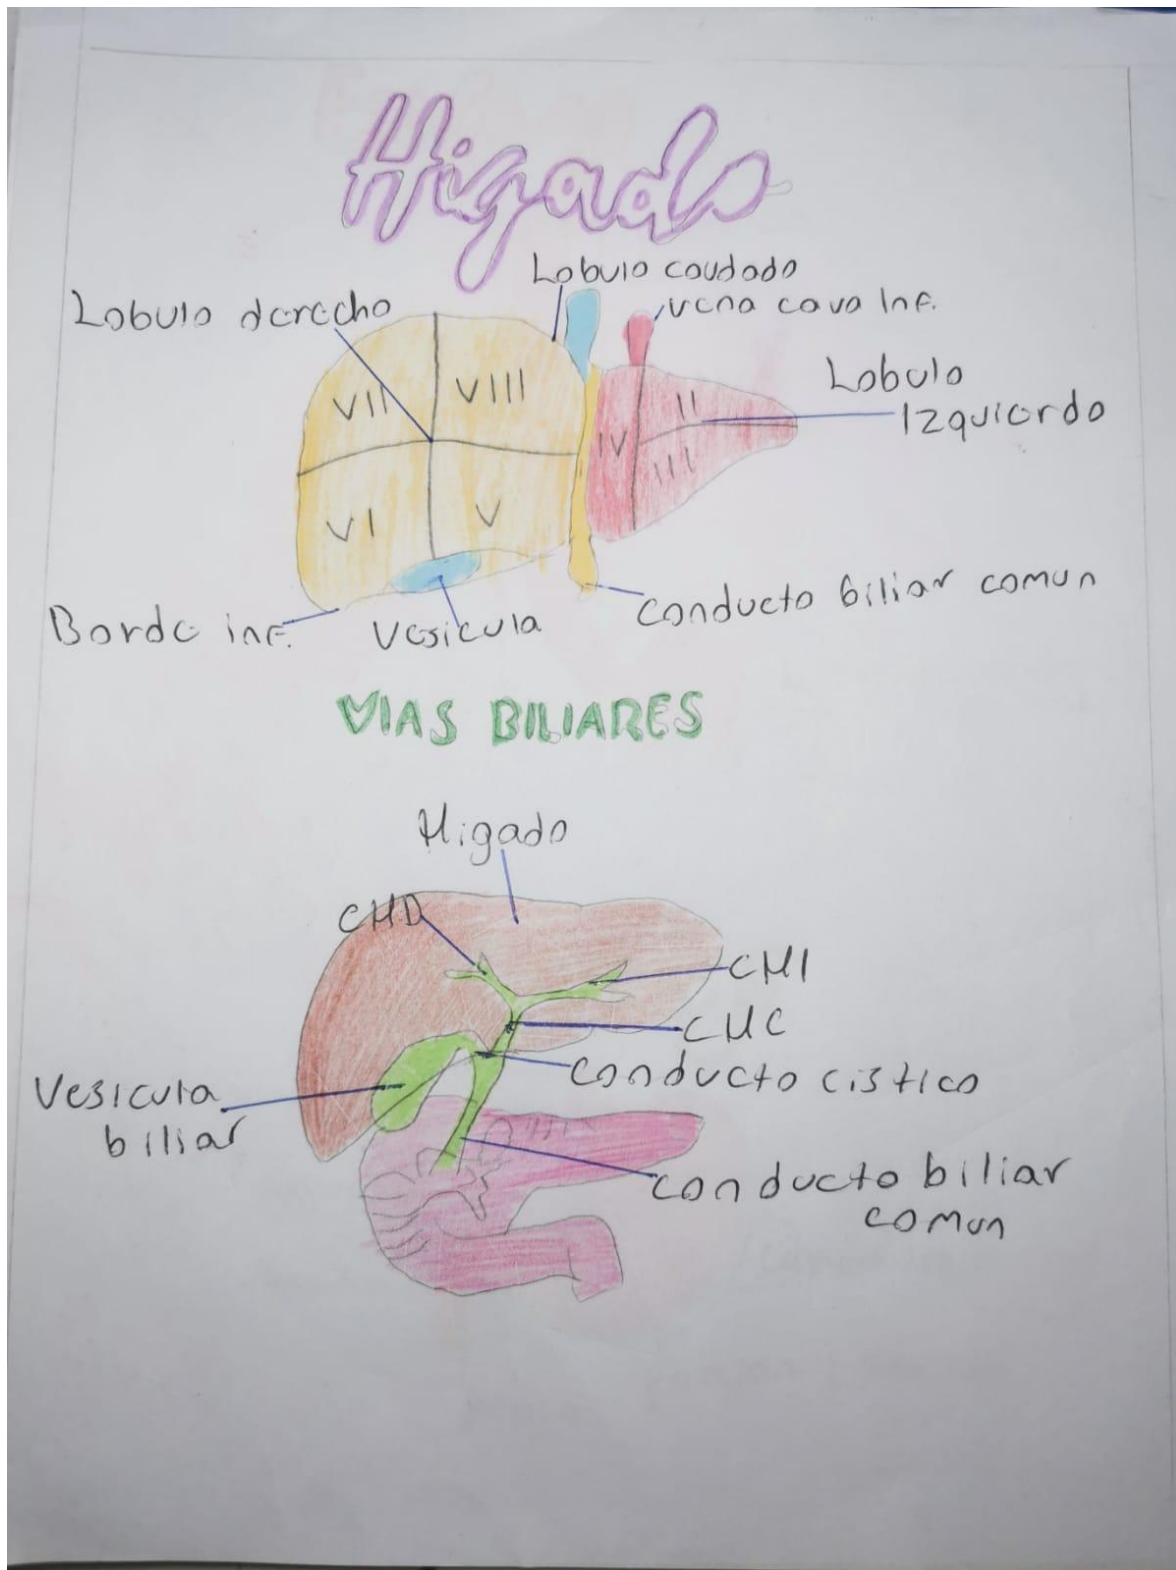 Higado
Lobulo caudado
Lobulo derecho
vena cava Inf.
Lobulo
Izquierdo
VII
VIII
II
IV
III
VI
V
Borde inf.
Vesicula
conducto biliar comun
VIAS BILIARES
Higado
CHD
CHI
CHC
conducto cistico
Vesicula
biliar
conducto biliar
comun